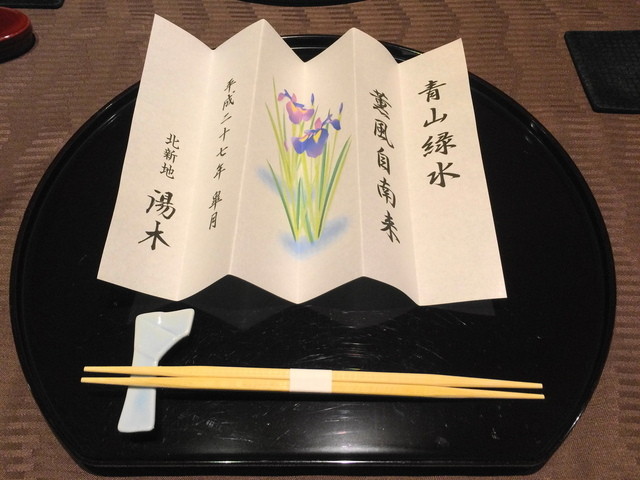 青山緑水
薫風自南来
平成二十七年 皐月
北新地 湯木